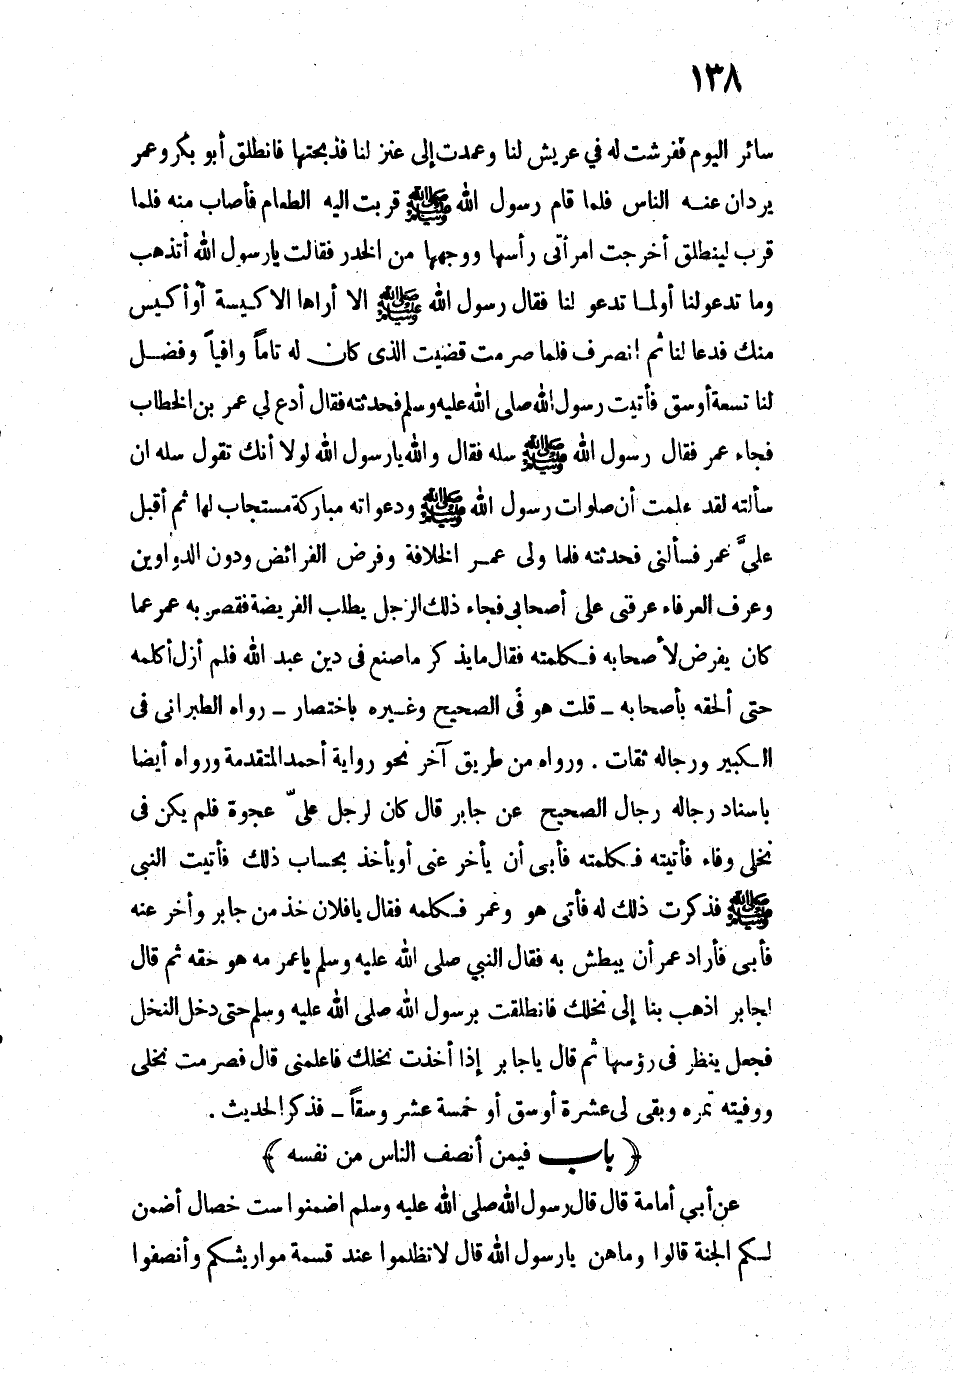 ١٣٨
سائر اليوم ففرشت له في عريش لنا وعمدت إلى عنز لنا فذبحتها فانطلق أبو بكر وعمر
يردان عنه الناس فلما قام رسول الله ﷺ قربت اليه الطعام فأصاب منه فلما
قرب لينطلق أخرجت امرأتى رأسها ووجهها من الخدر فقالت يارسول الله أتذهب
وما تدعو لنا أولما تدعو لنا فقال رسول الله ﷺ الا أراها الا كيسة أو أكيس
منك فدعا لنا ثم انصرف فلما صرمت قضيت الذى كان له تاماً وافياً وفضل
لنا تسعة أوسق فأتيت رسول الله صلى الله عليه وسلم فحدثته فقال أدع لي عمر بن الخطاب
فجاء عمر فقال رسول الله ﷺ سله فقال والله يارسول الله لولا أنك تقول سله ان
سألته لقد علمت أن صلوات رسول الله ﷺ ودعواته مباركة مستجاب لها ثم أقبل
عليَّ عمر فسألنى فحدثته فلما ولى عمر الخلافة وفرض الفرائض ودون الدواوين
وعرف العرفاء عرفنى على أصحابى فجاء ذلك الرجل يطلب الفريضة فقصر به عمر عما
كان يفرض لأصحابه فكلمته فقال مايذكر ماصنع فى دين عبد الله فلم أزل أكلمه
حتى ألحقه بأصحابه ــ قلت هو فى الصحيح وغيره باختصار ــ رواه الطبرانى فى
الكبير ورجاله ثقات . ورواه من طريق آخر نحو رواية أحمد المتقدمة ورواه أيضا
باسناد رجاله رجال الصحيح عن جابر قال كان لرجل علىّ عجوة فلم يكن فى
نخلى وفاء فأتيته فكلمته فأبى أن يأخر عنى أو يأخذ بحساب ذلك فأتيت النبى
ﷺ فذكرت ذلك له فأتى هو وعمر فكلمه فقال يافلان خذ من جابر وأخر عنه
فأبى فأراد عمر أن يبطش به فقال النبي صلى الله عليه وسلم ياعمر مه هو حقه ثم قال
لجابر اذهب بنا إلى نخلك فانطلقت برسول الله صلى الله عليه وسلم حتى دخل النخل
فجعل ينظر فى رؤسها ثم قال ياجابر إذا أخذت نخلك فاعلمنى قال فصرمت نخلى
ووفيته تمره وبقى لى عشرة أوسق أو خمسة عشر وسقاً ــ فذكر الحديث .
﴿ باب فيمن أنصف الناس من نفسه ﴾
عن أبي أمامة قال قال رسول الله صلى الله عليه وسلم اضمنوا ست خصال أضمن
لكم الجنة قالوا وماهن يارسول الله قال لاتظلموا عند قسمة مواريثكم وأنصفوا